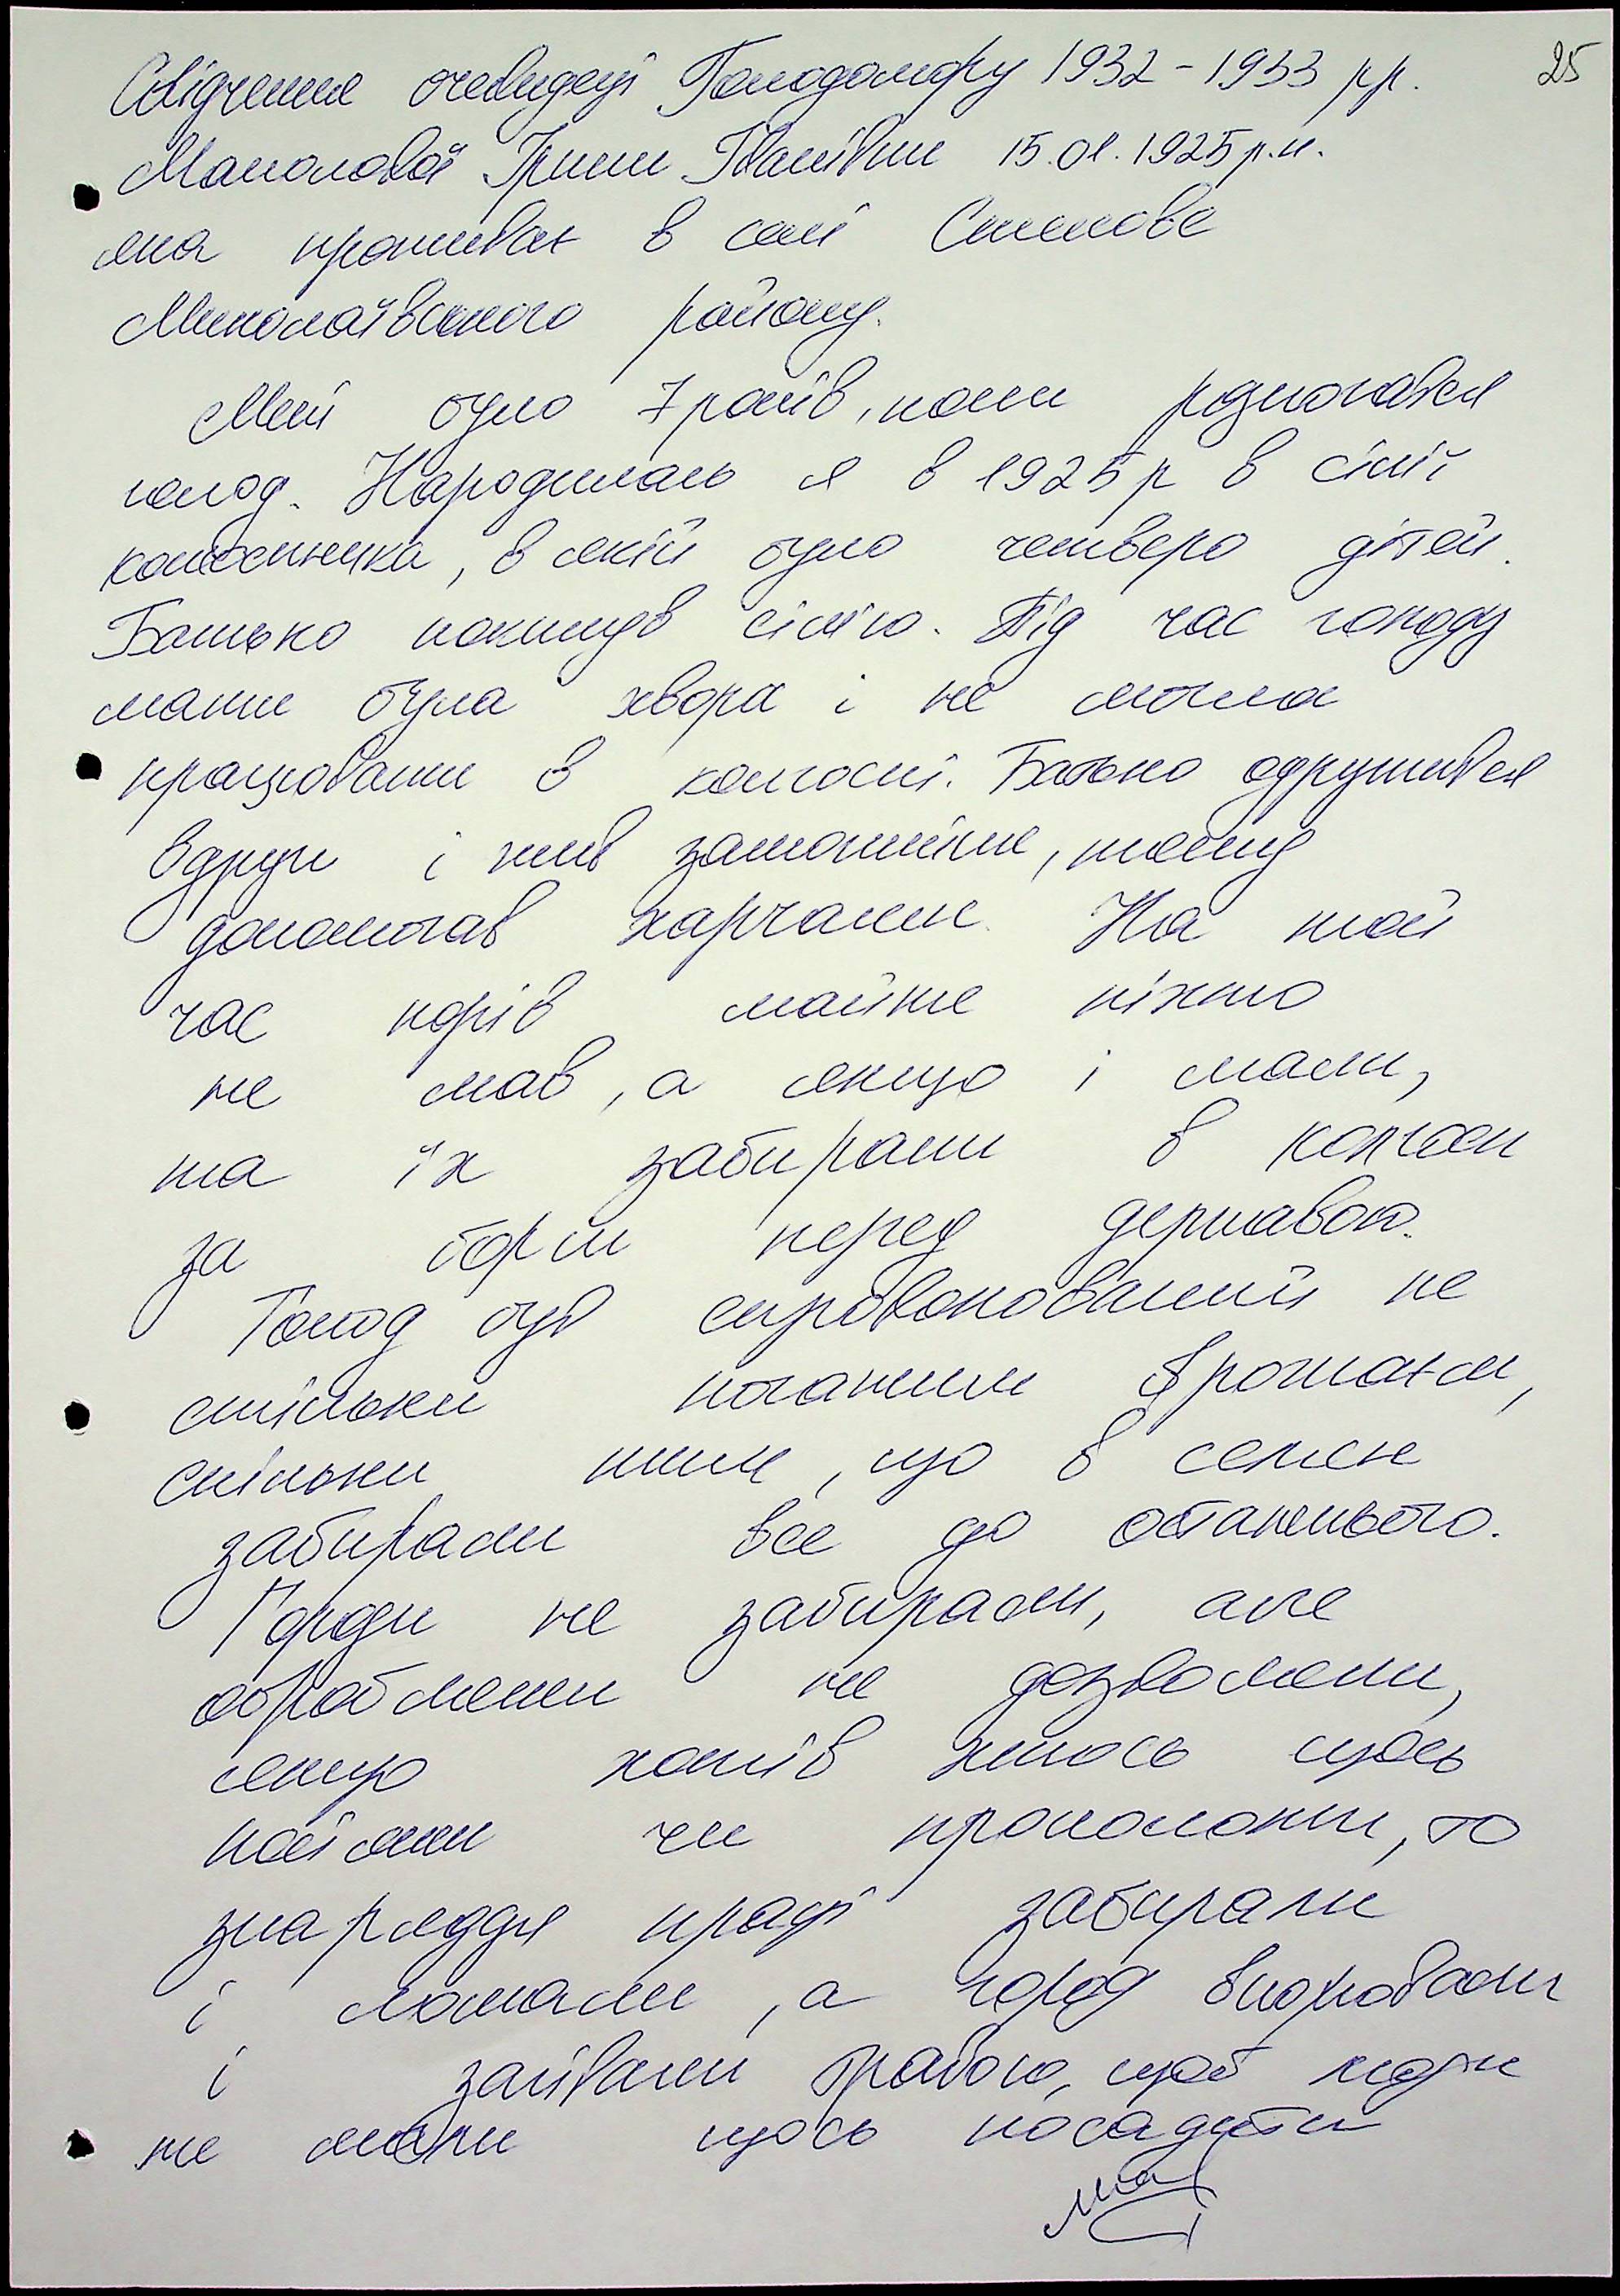 25
Свідчення очевидці Голодомору 1932-1933 рр.
Манолової Ірини Іванівни 15.01.1925 р.н.
яка проживає в селі Степове
Миколаївського району.
Мені було 7 років, коли розпочався
голод. Народилась я в 1925 р в сім'ї
колгоспника, в якій було четверо дітей.
Батько покинув сім'ю. Під час голоду
мати була хвора і не могла
працювати в колгоспі. Батько одружився
вдруге і жив заможніше, тому
допомагав харчами. На той
час корів майже ніхто
не мав, а якщо і мали,
та їх забирали в колгосп
за борги перед державою.
Голод був спровокований не
стільки поганим врожаєм,
скільки тим, що в селян
забирали все до останнього.
Городи не забирали, але
обробляти не дозволяли,
якщо хотів хтось щось
посіяти чи прополоти, то
знаряддя праці забирали
і ломали, а город
і травою, щоб люди
не мали щось посадити